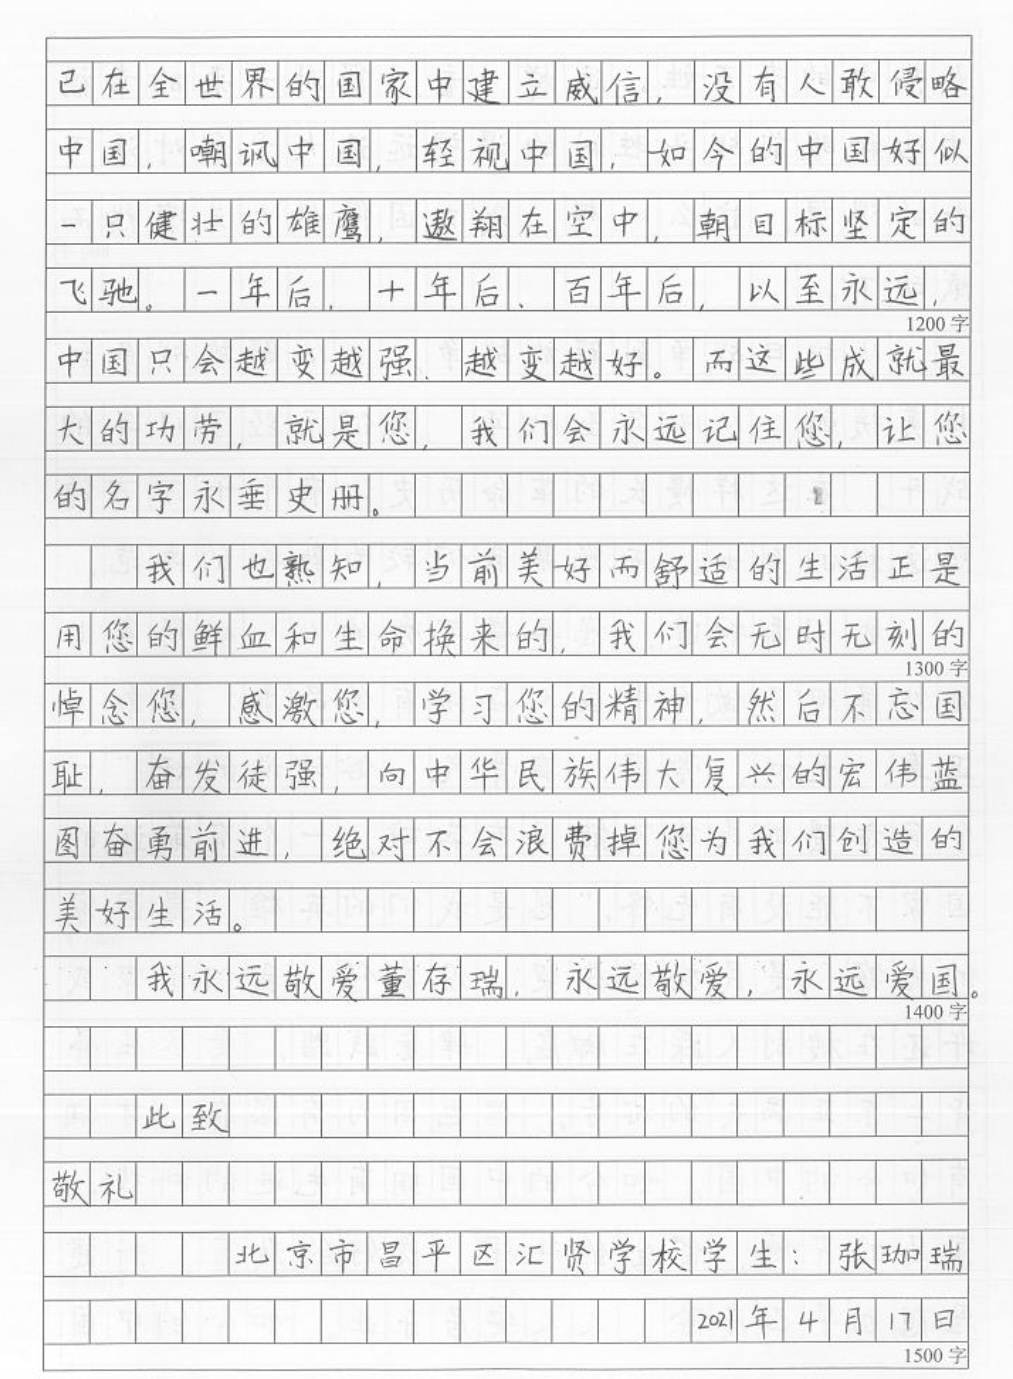 已在全世界的国家中建立威信，没有人敢侵略
中国，嘲讽中国，轻视中国，如今的中国好似
一只健壮的雄鹰，遨翔在空中，朝目标坚定的
飞驰。一年后，十年后、百年后，以至永远，
1200 字
中国只会越变越强、越变越好。而这些成就最
大的功劳，就是您，我们会永远记住您，让您
的名字永垂史册。
我们也熟知，当前美好而舒适的生活正是
用您的鲜血和生命换来的，我们会无时无刻的
1300 字
悼念您，感激您，学习您的精神，然后不忘国
耻，奋发徒强，向中华民族伟大复兴的宏伟蓝
图奋勇前进，绝对不会浪费掉您为我们创造的
美好生活。
我永远敬爱董存瑞，永远敬爱，永远爱国。
1400 字
此致
敬礼
北京市昌平区汇贤学校学生：张珈瑞
2021年4月17日
1500 字